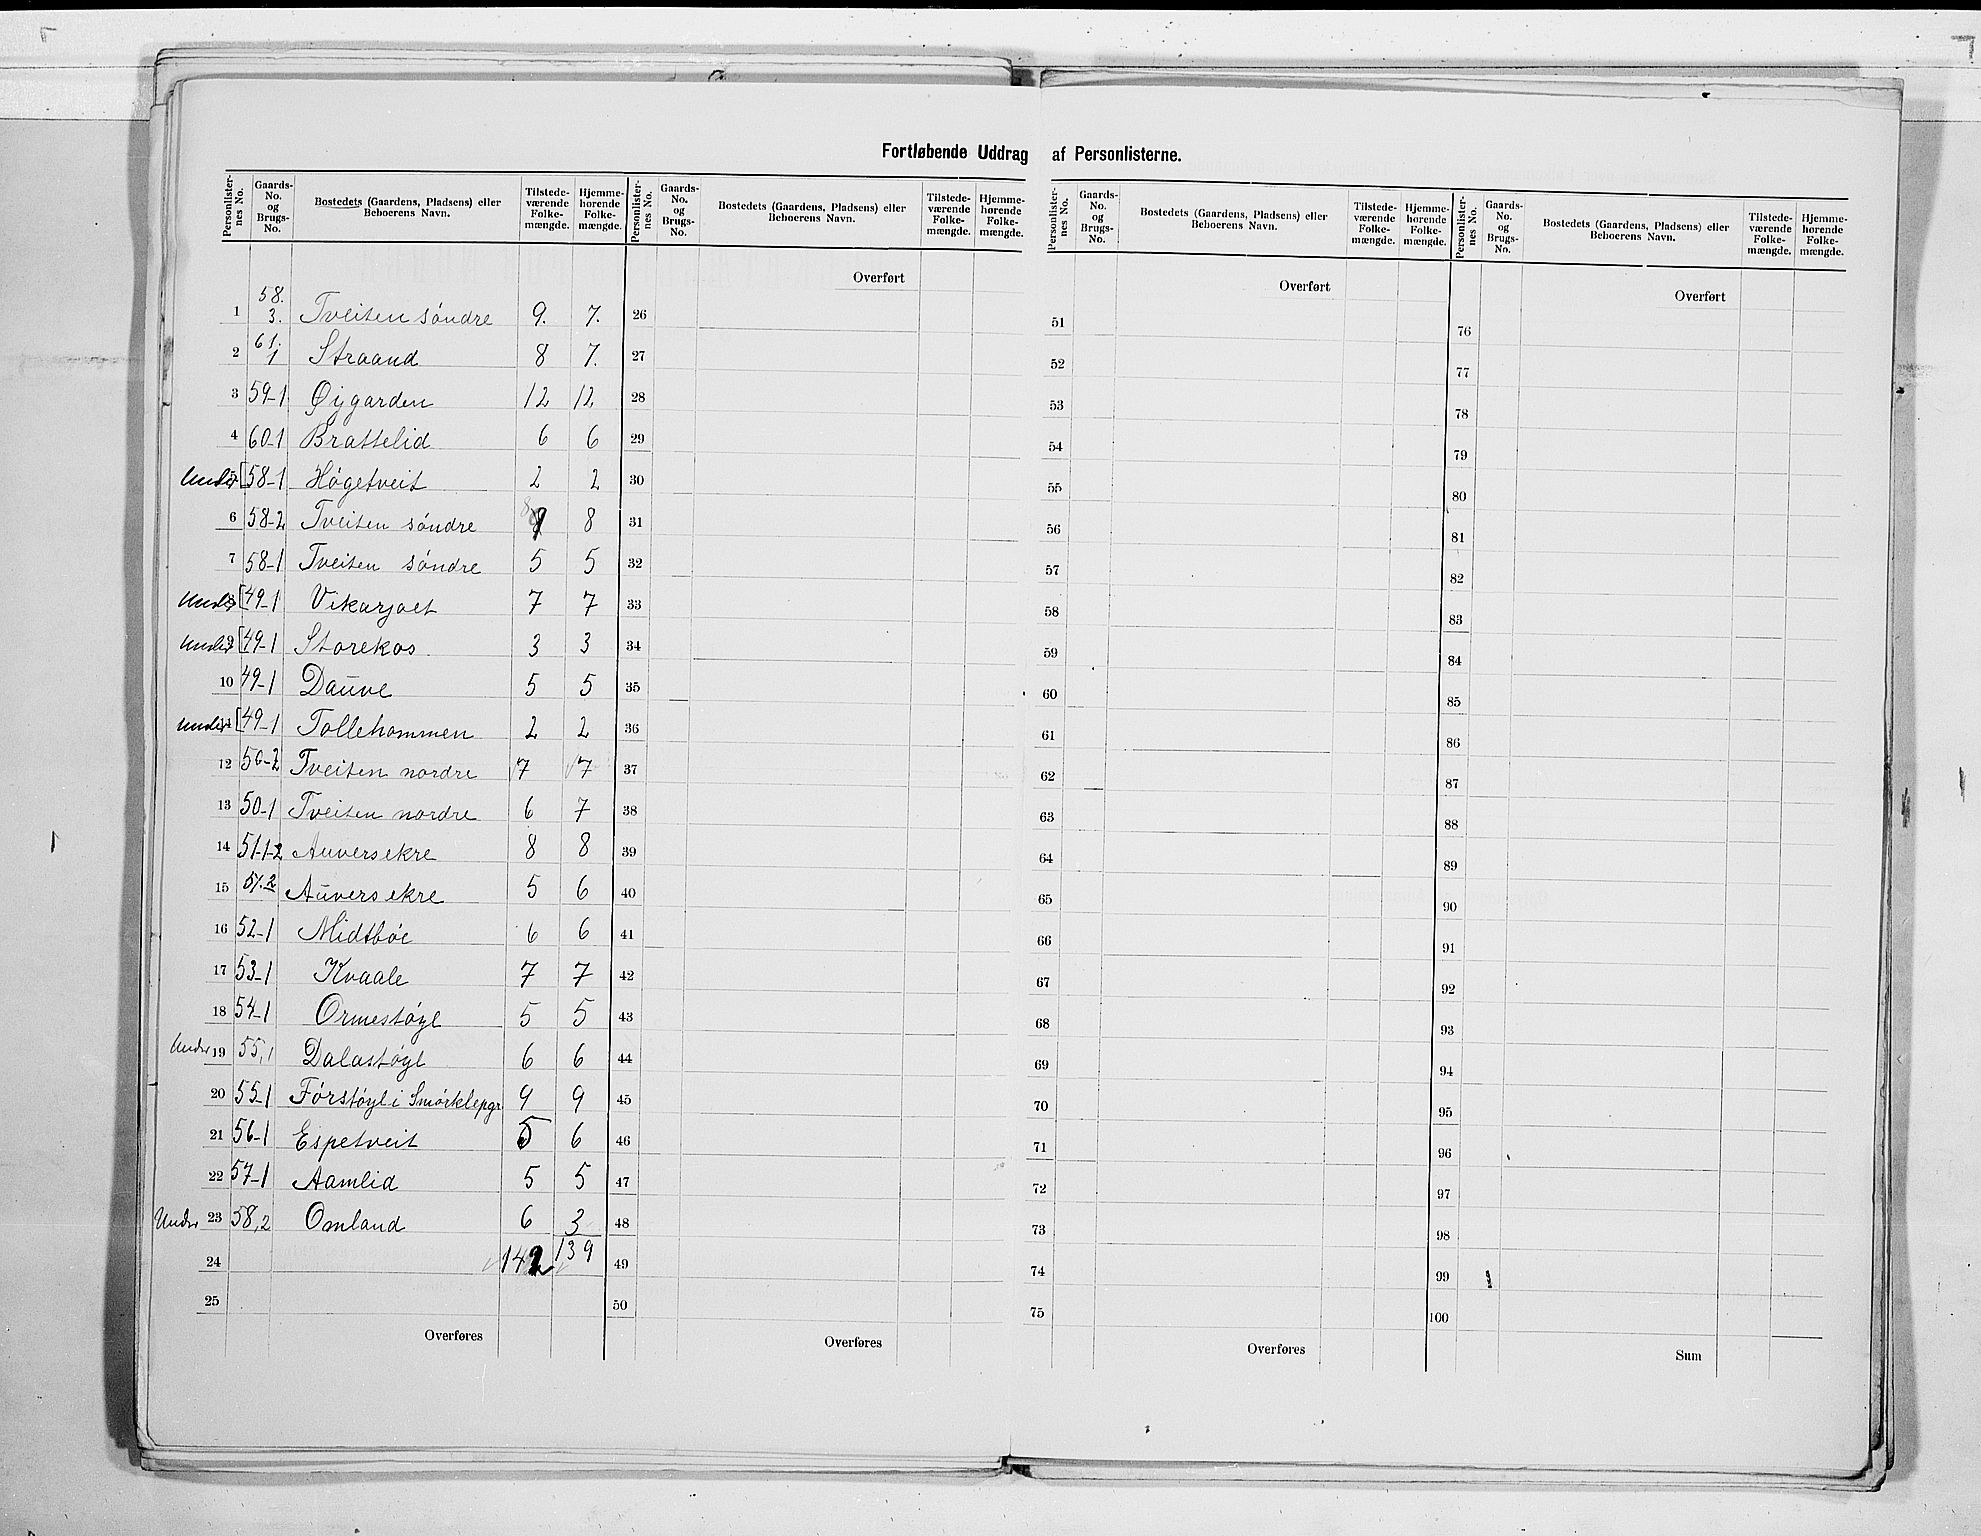 Fortløbende Uddrag af Personlisterne.
Personlister-nes No. | Gaards-No. og Brugs-No. | Bostedets (Gaardens, Pladsens) eller Beboerens Navn. | Tilstede-værende Folke-mængde. | Hjemme-hørende Folke-mængde.
1 58. 3. Tveiten söndre 9. 7.
2 61. 1 Straand 8 7.
3 59-1 Øygarden 12 12
4 60-1 Brattelid 6 6
Under 5 [58-1 Högetveit 2 2
6 58-2 Tveiten söndre 8 8
7 58-1 Tveiten söndre 5 5
Under 8 [49-1 Vikarjoet 7 7
Under 9 [49-1 Storekos 3 3
10 49-1 Dauve 5 5
Under 11 [49-1 Tollehommen 2 2
12 50-2 Tveiten nordre 7 7
13 50-1 Tveiten nordre 6 7
14 51-1-2 Auversekre 8 8
15 51.2 Auversekre 5 6
16 52-1 Midtböe 6 6
17 53-1 Kvaale 7 7
18 54-1 Ormestöyl 5 5
Under 19 55,1 Dalastöyl 6 6
20 55-1 Förstöyl i Smörklepgr 9 9
21 56-1 Espetveit 5 6
22 57-1 Aamlid 5 5
Under 23 58,2 Omland 6 3
24 142 139
25
Overføres
Personlister-nes No. | Gaards-No. og Brugs-No. | Bostedets (Gaardens, Pladsens) eller Beboerens Navn. | Tilstede-værende Folke-mængde. | Hjemme-hørende Folke-mængde.
Overført
26
27
28
29
30
31
32
33
34
35
36
37
38
39
40
41
42
43
44
45
46
47
48
49
50
Overføres
Personlister-nes No. | Gaards-No. og Brugs-No. | Bostedets (Gaardens, Pladsens) eller Beboerens Navn. | Tilstede-værende Folke-mængde. | Hjemme-hørende Folke-mængde.
Overført
51
52
53
54
55
56
57
58
59
60
61
62
63
64
65
66
67
68
69
70
71
72
73
74
75
Overføres
Personlister-nes No. | Gaards-No. og Brugs-No. | Bostedets (Gaardens, Pladsens) eller Beboerens Navn. | Tilstede-værende Folke-mængde. | Hjemme-hørende Folke-mængde.
Overført
76
77
78
79
80
81
82
83
84
85
86
87
88
89
90
91
92
93
94
95
96
97
98
99
100
Sum